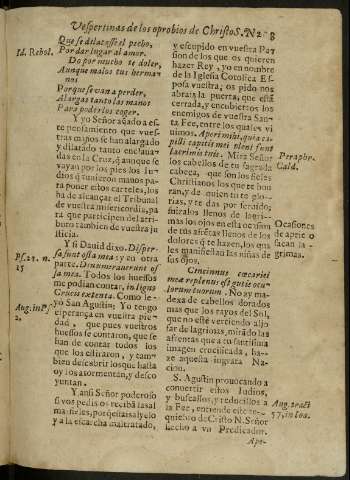 Vespertinas de los oprobios de Christo S. N. 278
Que se dilatasse el pecho,
Id. Rebol.
Por dar lugar al amor.
Do por mucho te doler,
Aunque malos tus herma
nos
Porque se van a perder,
Alargas tanto las manos
Para poderlos coger.
Y yo Señor añado a es-
te pensamiento que vues-
tras manos se han alargado
y dilatado tanto enclaua-
das en la Cruz, q̃ aunque se
vayan por los pies los Iu-
dios q̃ tuuieron manos pa-
ra poner estos carteles, los
ha de alcançar el Tribunal
de vuestra misericordia, pa
ra que participen del atri-
buto tambien de vuestra ju
sticia.
Y si Dauid dixo. Disper-
sa sunt ossa mea: y en otra
Ps. 21. n.
15
parte. Dinumerauerunt os
sa mea. Todos los huessos
me podian contar, in ligno
Crucis extenta. Como le-
Aug. in Ps.
2.
yo San Agustin; Yo tengo
esperança en vuestra pie-
dad, que pues vuestros
huessos se contaron, que se
han de contar todos los
que los estiraron, y tam-
bien descubrir los que hasta
oy los atormentan, y desco
yuntan.
Y ansi Señor poderoso
si vos pedis os reciba la sal
y a la escarcha maltratado,
y escupido en vuestra Pas
sion de los que os quieren
hazer Rey, yo en nombre
de la Iglesia Catolica Es-
posa vuestra, os pido nos
abrais la puerta, que està
cerrada, y encubiertos los
enemigos de vuestra San-
ta Fee, entre los quales vi
uimos. Aperi mihi, quia ca-
pilli capitis mei pleni sunt
lacrimis tuis. Mira Señor
Peraphr.
Cald.
los cabellos de tu sagrada
cabeça, que son los fieles
Christianos los que te hon
ran, y de quien tu te glo-
rias, y te das por seruido;
miralos llenos de lagri-
mas los ojos en esta ocasion
Ocasiones
de aprieto
sacan la-
grimas.
de tus afrentas llenos de los
dolores q̃ te hazen, los que
les manifiestan las niñas de
sus ojos.
Cincinnus cæsariei
meæ replenus est gutis ocu-
lorum tuorum. No ay ma-
dexa de cabellos dorados
mas que los rayos del Sol,
que no estè vertiendo aljo
far de lagrimas, mirãdo las
afrentas que a tu santissima
imagen crucificada, ha-
ze aquesta ingrata Na-
cion.
S. Agustin prouocando a
conuertir estos Iudios,
y buscallos, y reducillos a
la Fee, entiende este re-
Aug. tract
57, in Ioa.
quiebro de Cristo N. Señor
hecho a vn Predicador.
Ape-